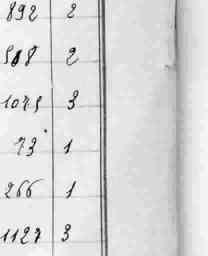 892 2
508 2
1075 3
73 1
266 1
1127 3